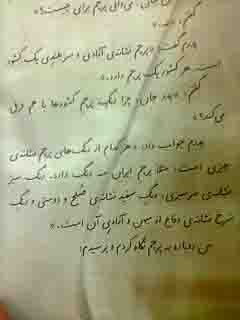 جان، می‌دانی پرچم برای چیست؟»
گفتم: «نه.»
پدرم گفت: «پرچم نشانه‌ی آزادی و سربلندی یک کشور
است. هر کشور یک پرچم دارد.»
گفتم: «پدر جان، چرا رنگ پرچم کشورها با هم فرق
می‌کند؟»
پدرم جواب داد: «هر کدام از رنگ‌های پرچم نشانه‌ی
چیزی است؛ مثلا پرچم ایران سه رنگ دارد. رنگ سبز
نشانه‌ی سرسبزی، رنگ سفید نشانه‌ی صلح و دوستی و رنگ
سرخ نشانه‌ی دفاع از میهن و آزادی آن است.»
من دوباره به پرچم نگاه کردم و پرسیدم: